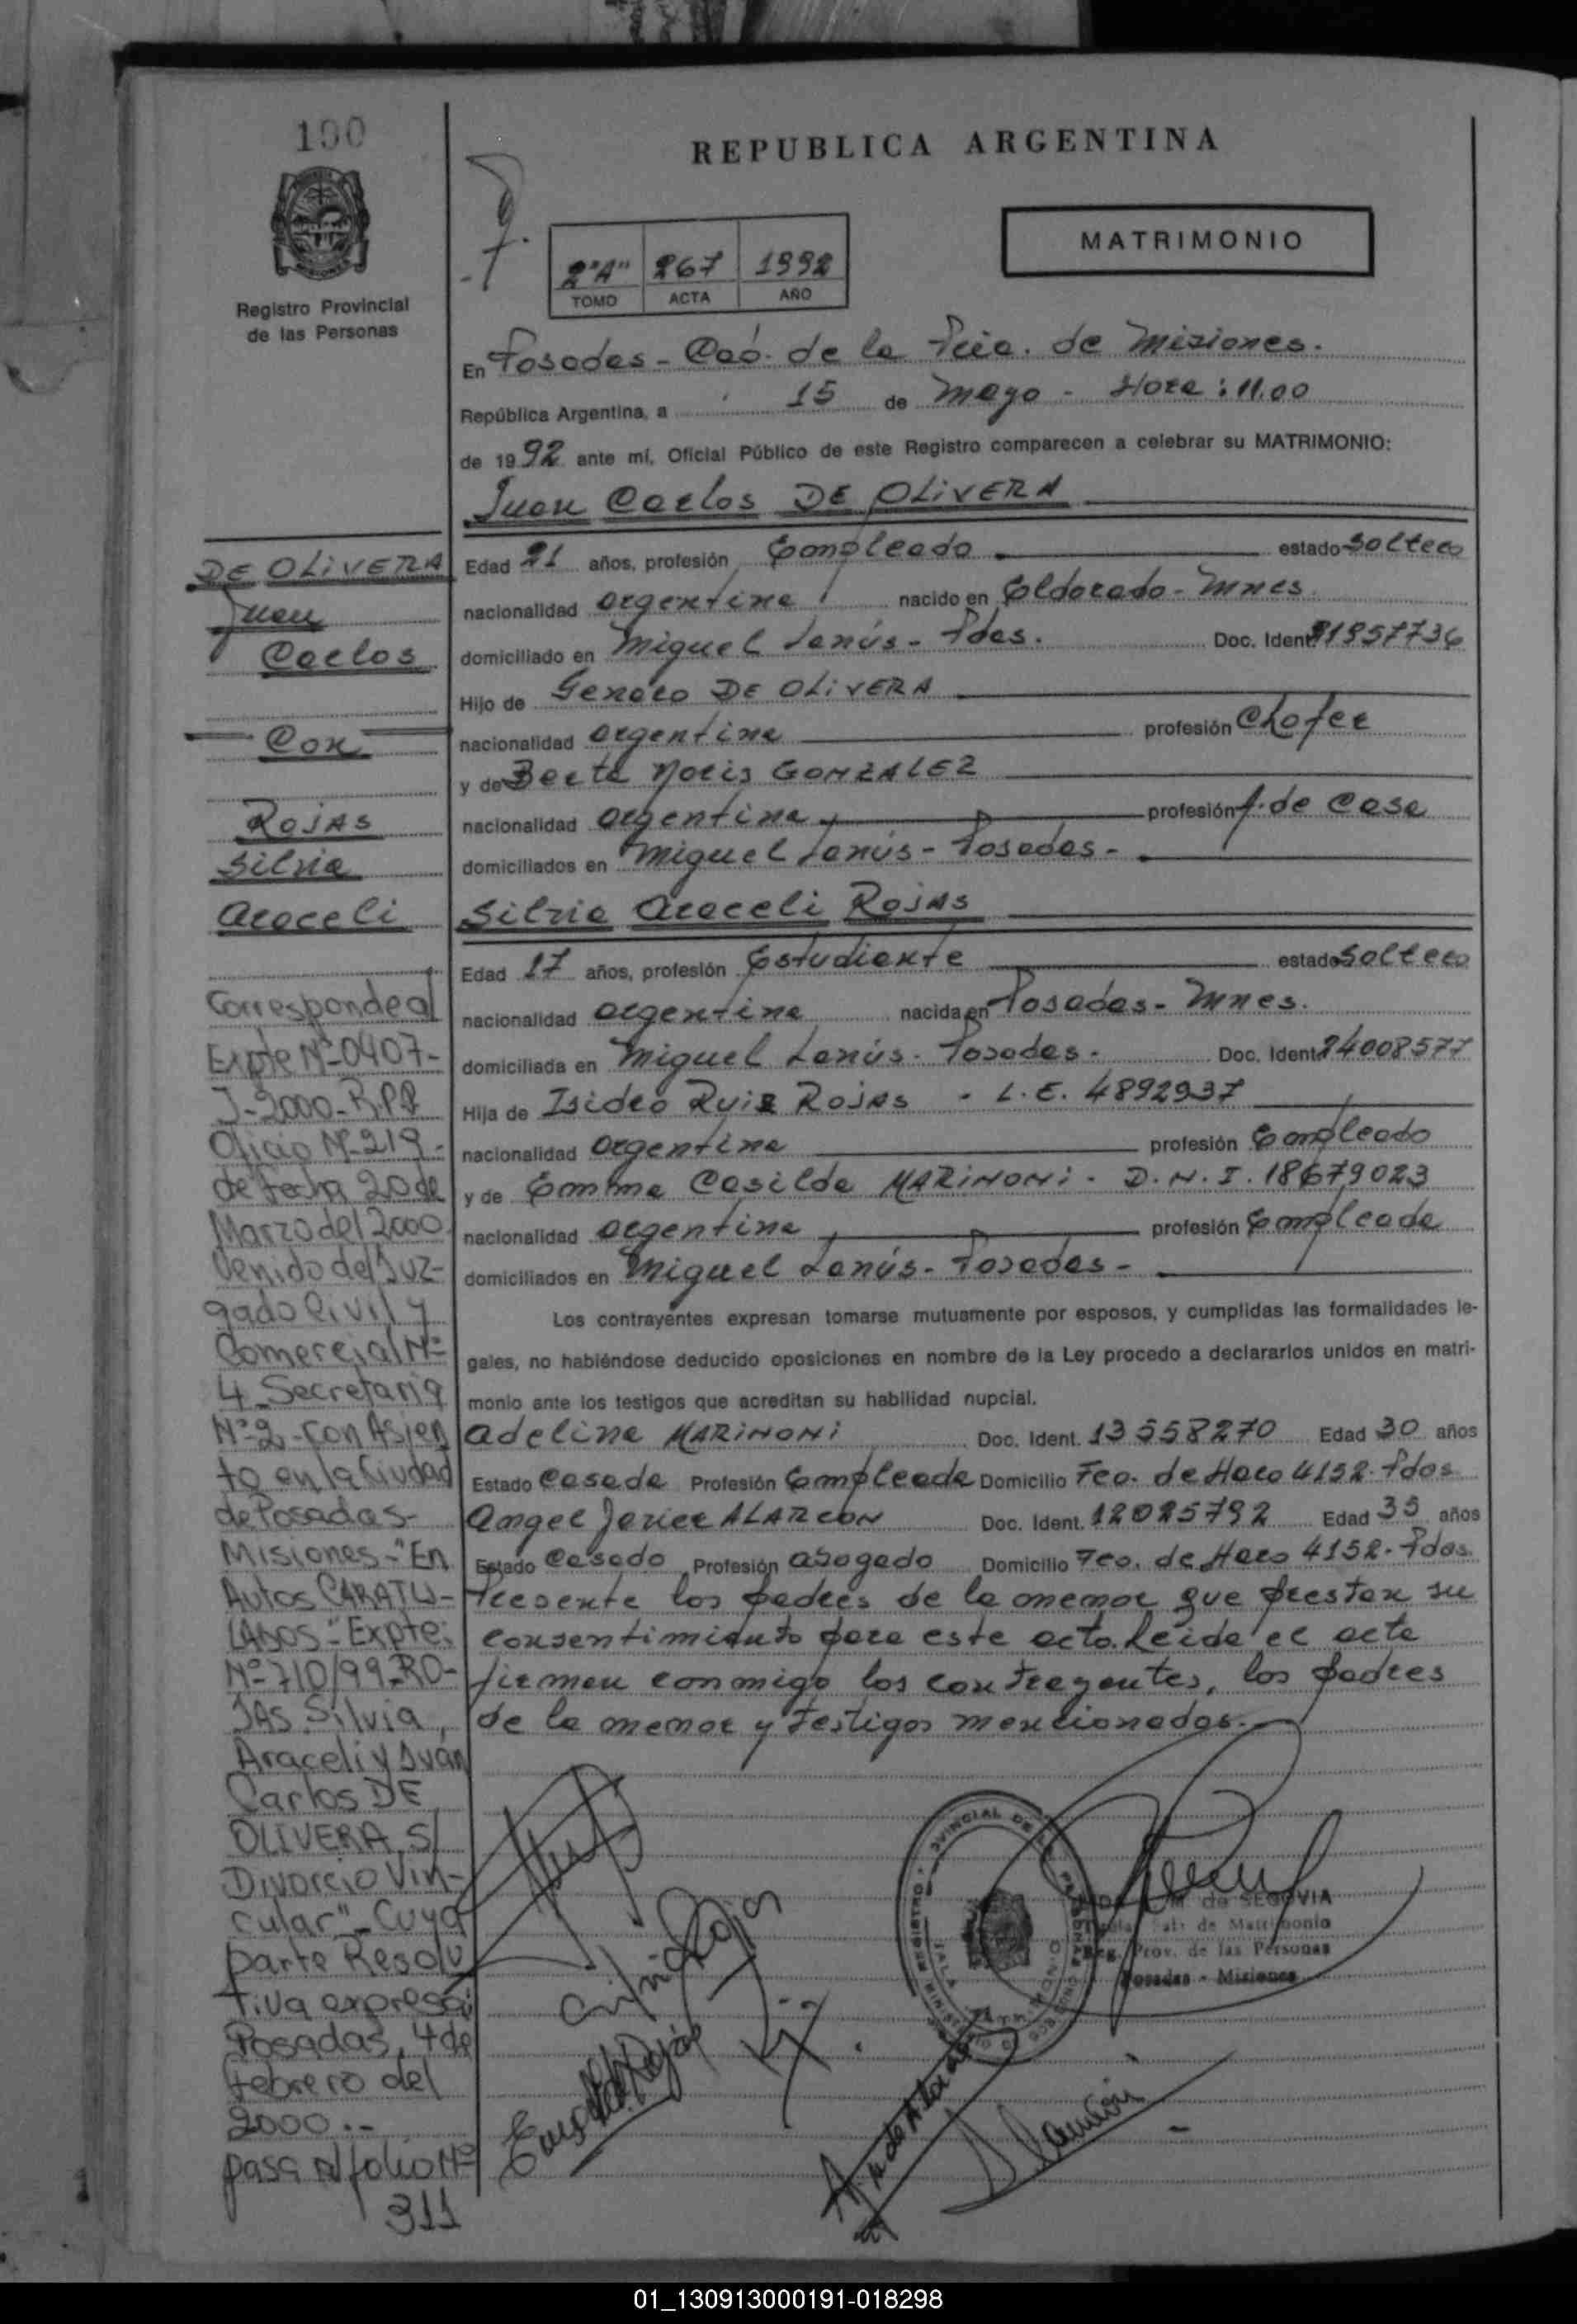 100
Registro Provincial
de las Personas
REPUBLICA ARGENTINA
MATRIMONIO
2"A" 267 1992
TOMO ACTA AÑO
En Posadas - Cap. de la Pcia. de Misiones.
República Argentina, a 15 de Mayo - Hora: 11.00
de 1992 ante mí, Oficial Público de este Registro comparecen a celebrar su MATRIMONIO:
Juan Carlos DE OLIVERA
Edad 21 años, profesión Empleado estado Soltero
nacionalidad argentina nacido en Eldorado - Mnes.
domiciliado en Miguel Lanús - Pdas. Doc. Ident. 21957736
Hijo de Genaro DE OLIVERA
nacionalidad argentina profesión Chofer
y de Berta Noris GONZALEZ
nacionalidad argentina profesión A. de Casa
domiciliados en Miguel Lanús - Posadas -
Silvia Araceli ROJAS
Edad 17 años, profesión Estudiante estado Soltera
nacionalidad argentina nacida en Posadas - Mnes.
domiciliada en Miguel Lanús - Posadas - Doc. Ident. 24008577
Hija de Isidro Ruiz Rojas - L.E. 4892937
nacionalidad argentina profesión Empleado
y de Emma Casilda MARINONI - D.N.I. 18679023
nacionalidad argentina profesión Empleada
domiciliados en Miguel Lanús - Posadas -
Los contrayentes expresan tomarse mutuamente por esposos, y cumplidas las formalidades le-
gales, no habiéndose deducido oposiciones en nombre de la Ley procedo a declararlos unidos en matri-
monio ante los testigos que acreditan su habilidad nupcial.
Adelina MARINONI Doc. Ident. 13558270 Edad 30 años
Estado Casada Profesión Empleada Domicilio Fco. de Haro 4152. Pdas
Angel Javier ALARCON Doc. Ident. 12025792 Edad 35 años
Estado Casado Profesión abogado Domicilio Fco. de Haro 4152. Pdas.
Presente los padres de la menor que prestan su
consentimiento para este acto. Leída el acta
firman conmigo los contrayentes, los padres
de la menor y testigos mencionados.
DE OLIVERA
Juan
Carlos
Con
ROJAS
Silvia
Araceli
Corresponde al
Expte Nº 0407-
J-2000-R.P.P
Oficio Nº 219-
de fecha 20 de
Marzo del 2000
Venido del Juz-
gado Civil y
Comercial Nº
4 Secretaria
Nº 2 - con Asien
to en la Ciudad
de Posadas-
Misiones - "En
Autos CARATU-
LADOS - "Expte:
Nº 710/99 - RO-
JAS Silvia
Araceli y Juan
Carlos DE
OLIVERA S/
Divorcio Vin-
cular" - Cuya
parte Resolu
tiva expresa:
Posadas, 4 de
febrero del
2000.-
pasa Al folio Nº
311
M. de SEGOVIA
de Matrimonio
Reg. Prov. de las Personas
Posadas - Misiones
01_130913000191-018298